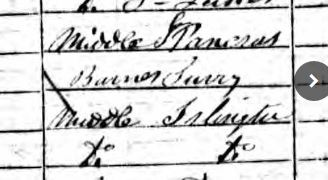 Middle St Pancras
Barnes Surry
Middle Islington
Do Do